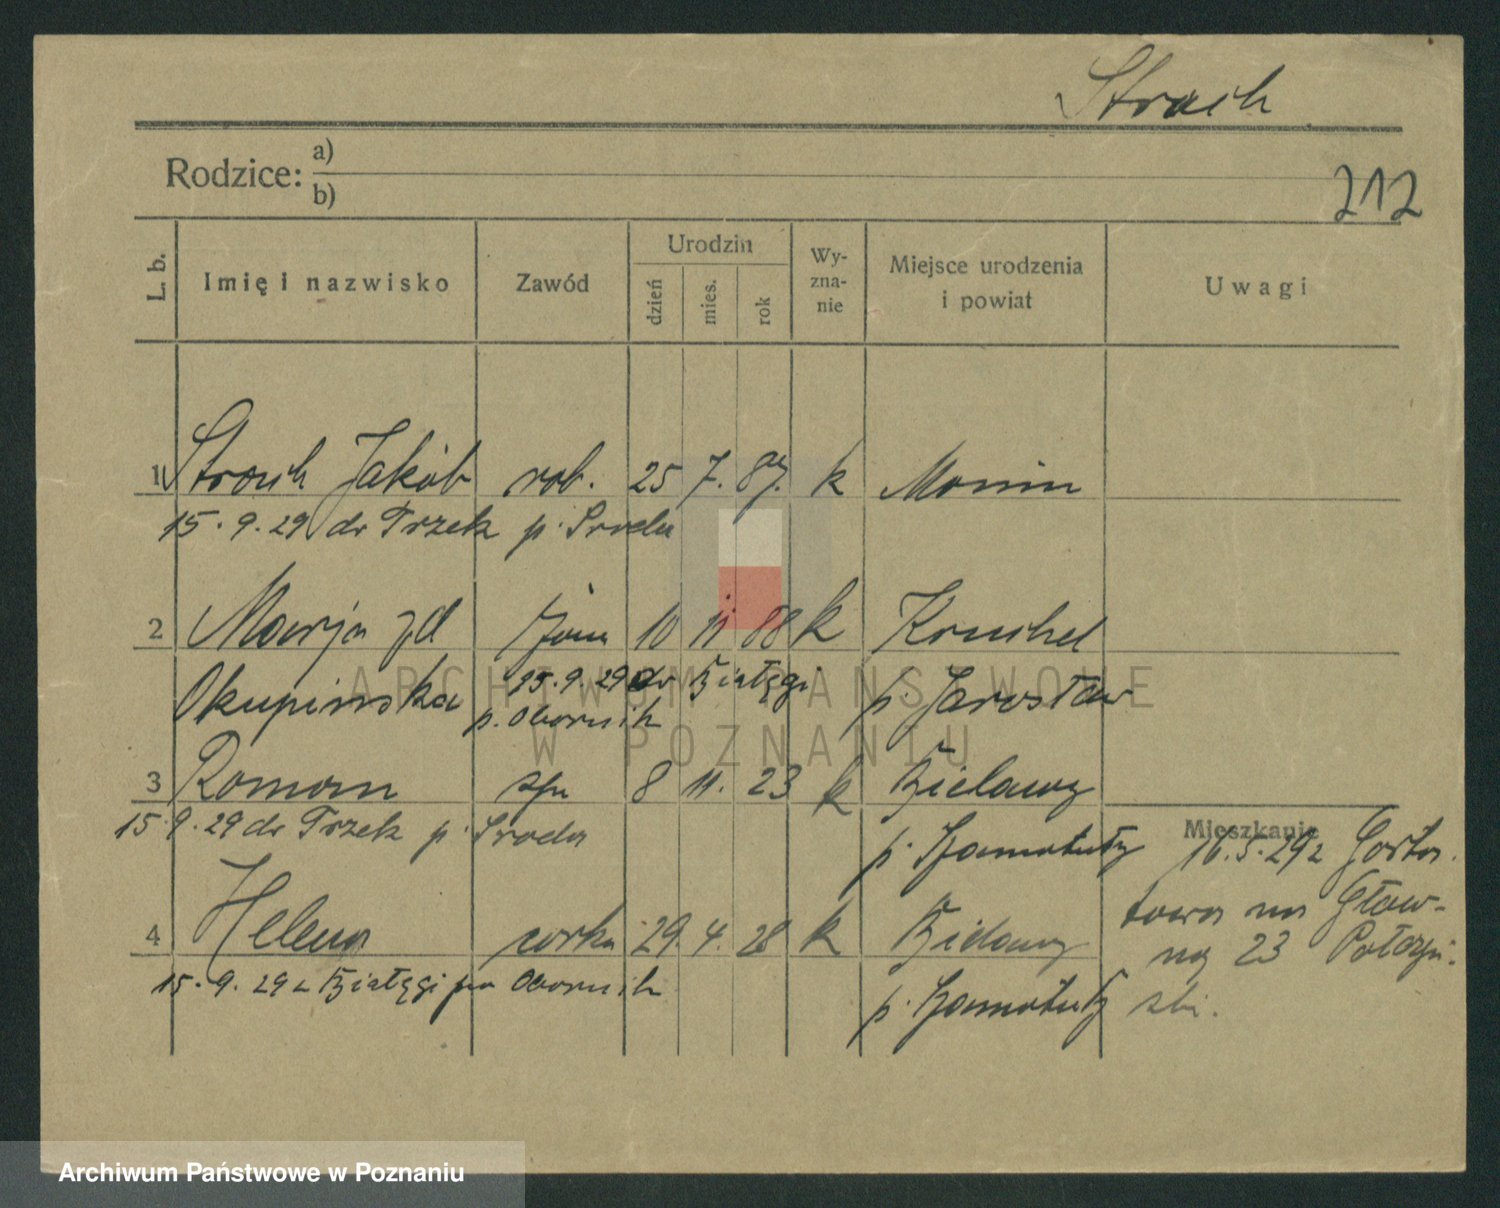 Strach
Rodzice: a)
b)
212
L. b.
Imię i nazwisko
Zawód
Urodzin
dzień
mies.
rok
Wy-
zna-
nie
Miejsce urodzenia
i powiat
Uwagi
1 Strach Jakób rob. 25 7. 87. k
15. 9. 29 do Trzek p. Sroda
2 Marja zd żona 10 11 88 k Kruchel
Okupinska 15. 9. 29 do Białęgi p. Jarosław
p. Obornik
3 Roman syn 8 11. 23 k Bielawy
15. 9. 29 do Trzek p. Sroda p. Szamotuły
Mieszkanie
16. 5. 29 z Gorta
towa na Głow-
4 Helena córka 29. 4. 28 k Bielawy
ną 23
15. 9. 29 z Białęgi pow Obornik
p. Szamotuły
ski.
ARCHIWUM PAŃSTWOWE
W POZNANIU
Archiwum Państwowe w Poznaniu